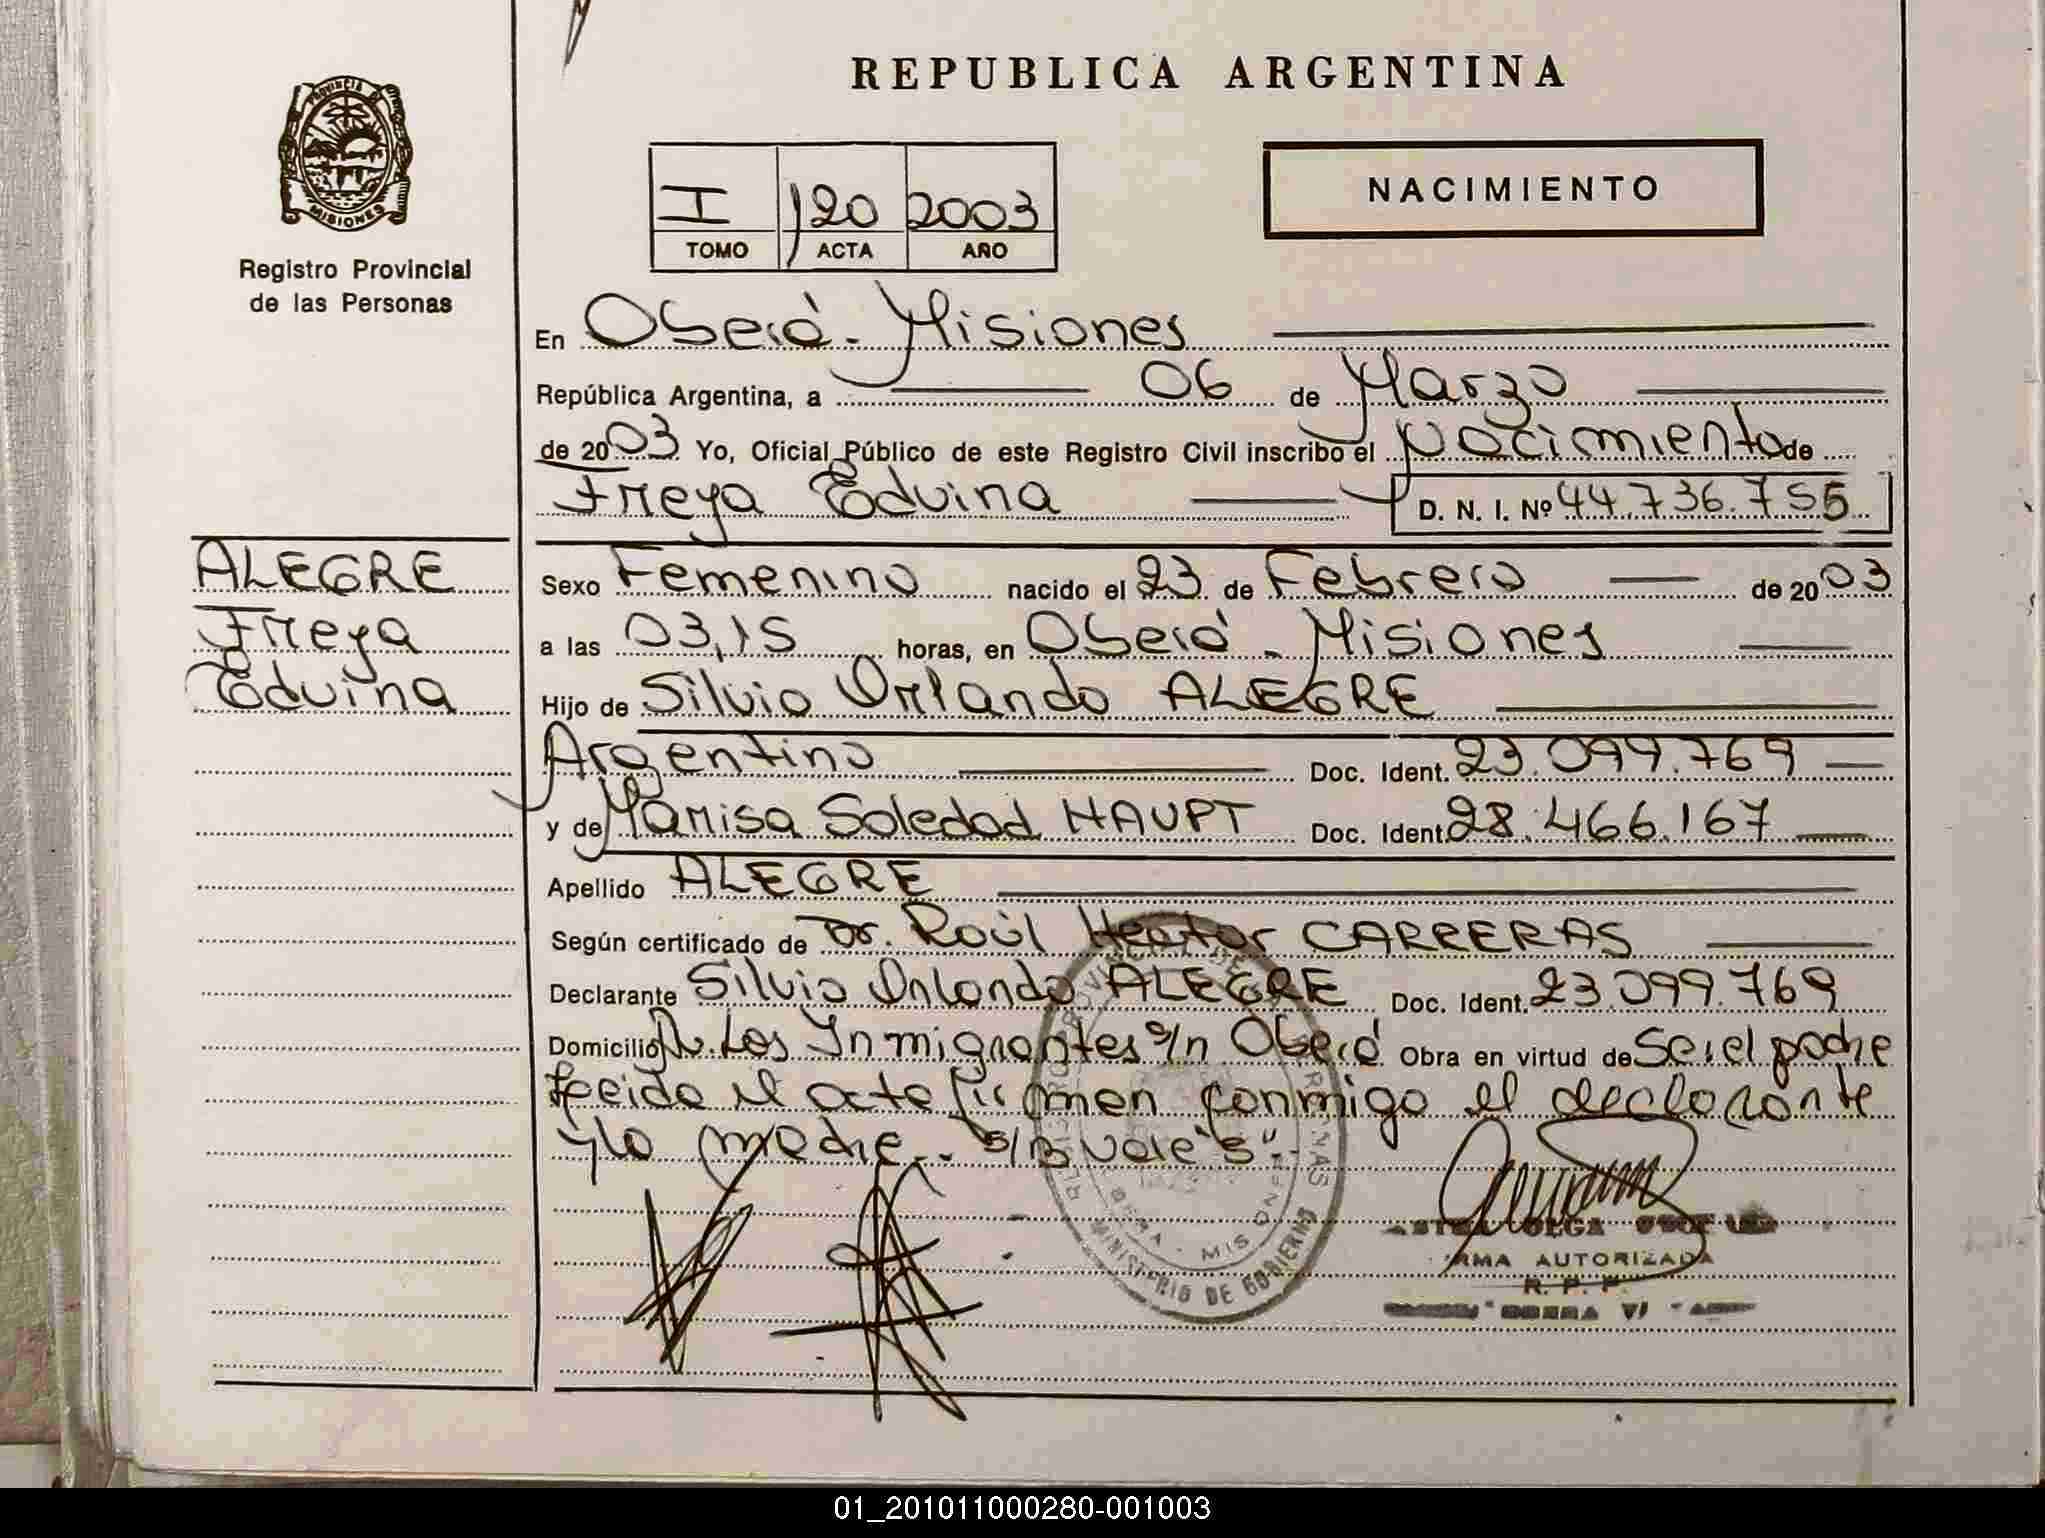 REPUBLICA ARGENTINA
PROVINCIA DE
MISIONES
Registro Provincial
de las Personas
I 120 2003
TOMO ACTA AÑO
NACIMIENTO
En Oberá - Misiones
República Argentina, a 06 de Marzo
de 2003 Yo, Oficial Público de este Registro Civil inscribo el nacimiento de
Freya Edvina D. N. I. Nº 44.736.755
ALEGRE
Freya
Edvina
Sexo Femenino nacido el 23 de Febrero de 2003
a las 03,15 horas, en Oberá - Misiones
Hijo de Silvio Orlando ALEGRE
Argentino Doc. Ident. 23.099.769
y de Marisa Soledad HAUPT Doc. Ident. 28.466.167
Apellido ALEGRE
Según certificado de Dr. Raúl Hector CARRERAS
Declarante Silvio Orlando ALEGRE Doc. Ident. 23.099.769
Domicilio Av. Los Inmigrantes s/n Oberá Obra en virtud de Ser el padre
Leida el acta firman conmigo el declarante
y la madre.. s/B vale "S".-
MINISTERIO DE GOBIERNO
OLGA
FIRMA AUTORIZADA
R. P. P.
01_201011000280-001003